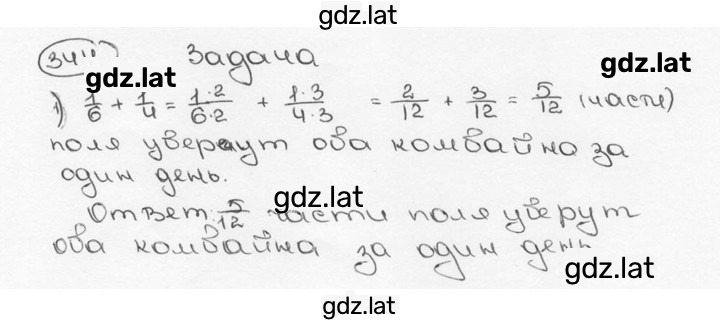 gdz.lat
341) Задача
gdz.lat
1) 1/6 + 1/4 = 1·2/6·2 + 1·3/4·3 = 2/12 + 3/12 = 5/12 (части)
поля уберут оба комбайна за
один день.
gdz.lat
Ответ: 5/12 части поля уберут
оба комбайна за один день
gdz.lat
gdz.lat